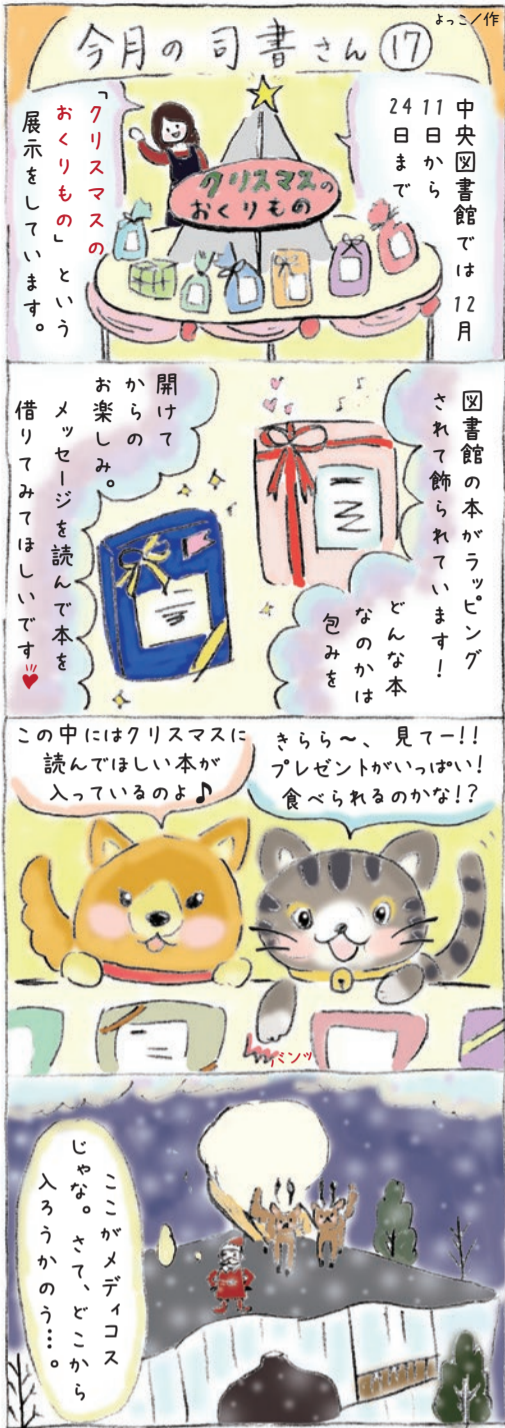 よっこ/作
今月の司書さん⑰
中央図書館では12月
11日から
24日まで
「クリスマスの
おくりもの」という
展示をしています。
クリスマスの
おくりもの
図書館の本がラッピング
されて飾られています!
どんな本
なのかは
包みを
開けて
からの
お楽しみ。
メッセージを読んで本を
借りてみてほしいです♥
きらら〜、見てー!!
プレゼントがいっぱい!
食べられるのかな!?
この中にはクリスマスに
読んでほしい本が
入っているのよ♪
バンッ
ここがメディコス
じゃな。さて、どこから
入ろうかのう…。